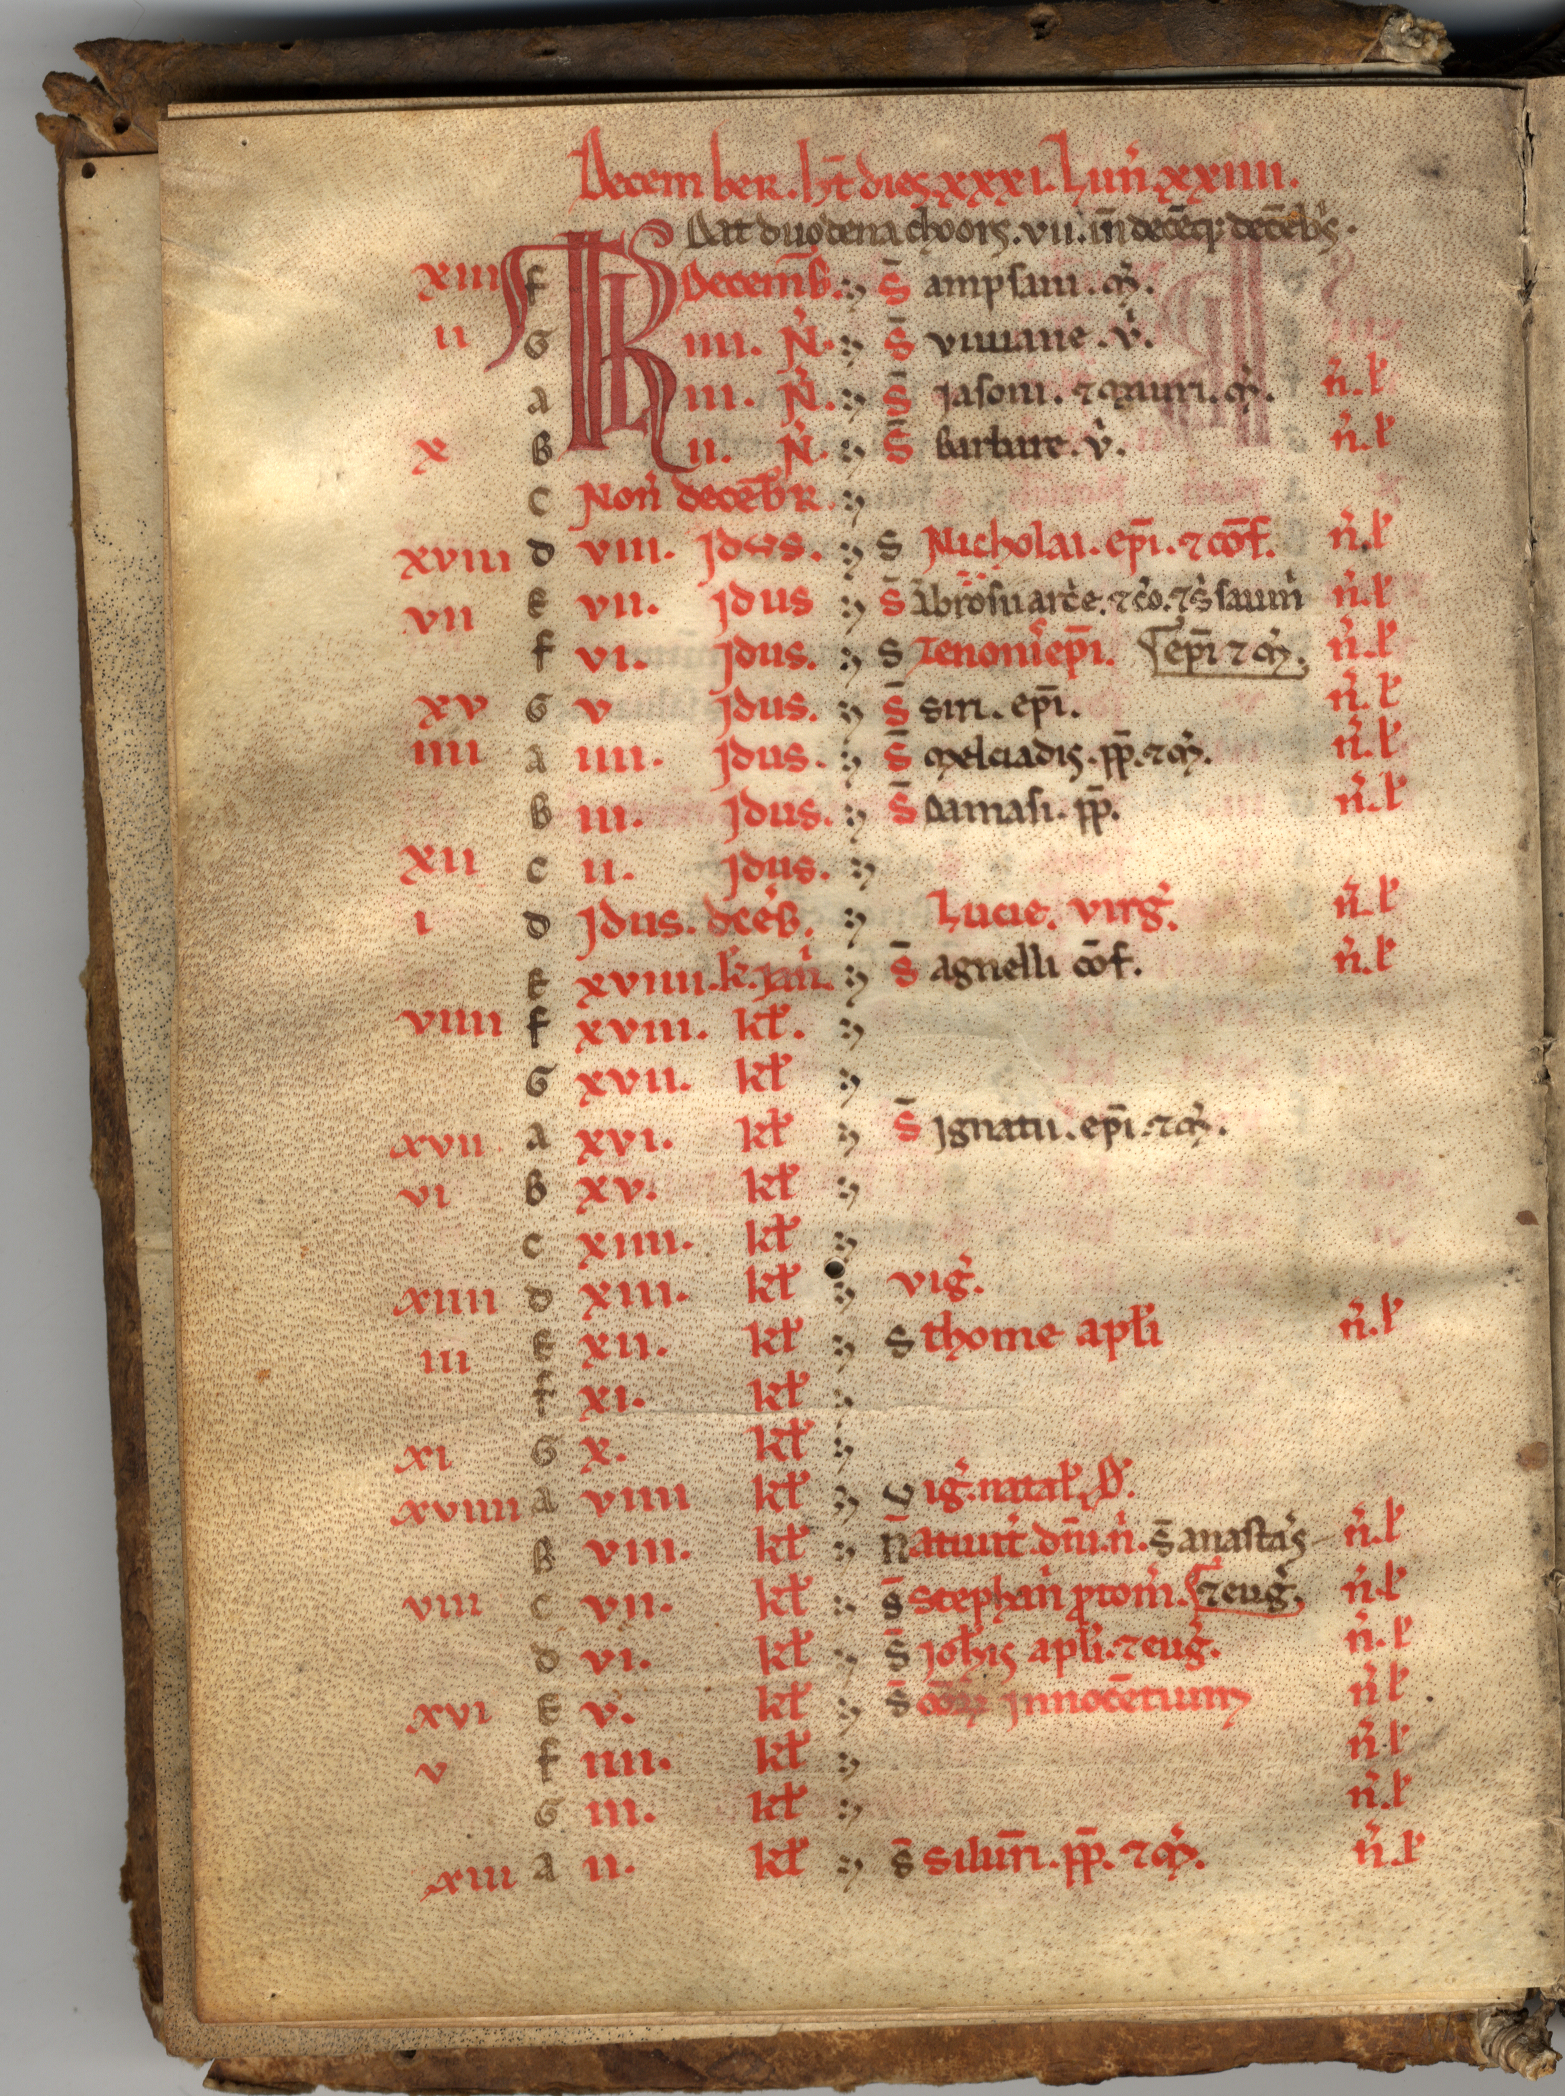 December. ht̄ dies xxxi. Lun̄. xxiiii.
Dat duodena choors. vii. in̄ decē q; decēb's.
xiii f KL Decemb̄. S̄ ampsani. m̄.
ii G iiii. N̄. S̄ viviane. v̄.
A iii. N̄. S̄ Jasoni. ⁊ mauri. m̄. n̄. l'
x B ii. N̄. S̄ Barbare. v̄.  n̄. l'
c Non̄ decēb̄R.
xviii d viii. Jdus. S Nicholai. ep̄i. ⁊ cōf. n̄. l'
vii E vii. Jdus S̄ Ābrosii arc̄e. ⁊ c̄o. ⁊ s̄ savin̄ n̄. l'
f vi. Jdus. S Zenonis ep̄i. ep̄i ⁊ m̄. n̄. l'
xv G v Jdus. S̄ siri. ep̄i. n̄. l'
iiii A iiii. Jdus. S̄ melciadis. pp̄. ⁊ m̄. n̄. l'
B iii. Jdus. S̄ Damasi. pp̄. n̄. l'
xii c ii. Jdus.
i d Jdus. dcēb̄. Lucie. virḡ. n̄. l'
E xviiii. k̄. Jan̄. S̄ agnelli cōf. n̄. l'
viiii f xviii. kł.
G xvii. kł
xvii A xvi. kł S̄ Jgnatii. ep̄i. ⁊ m̄.
vi B xv. kł
c xiiii. kł
xiiii d xiii. kł viḡ.
iii E xii. kł S thome apłi n̄. l'
f xi. kł
xi G x. kł
xviiii A viiii kł viḡ. natał. D̄.
B viii. kł N̄ativit̄. dn̄i. n̄. S̄ anastas̄ n̄. l'
viii c vii. kł S̄ stephan̄i ꝓtom̄. ⁊ euḡ. n̄. l'
d vi. kł S̄ Joħis apłi. ⁊ euḡ. n̄. l'
xvi E v. kł S̄ innocētium n̄ l'
v f iiii. kł n̄. l'
G iii. kł n̄. l'
xiii A ii. kł S̄ silvr̄i. pp̄. ⁊ m̄. n̄. l'